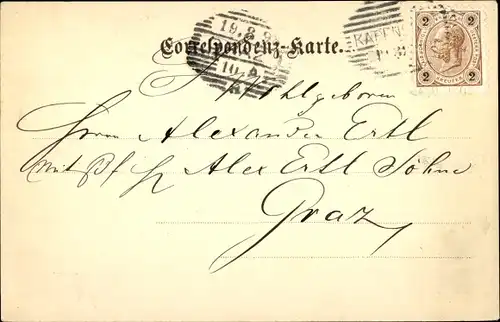 Correspondenz-Karte.
19.8.9
10.V
KAPFEN
2 2
2 KREUZER 2
Wohlgeboren
Herrn Alexander Ertl
Alex Ertl Söhne
Graz